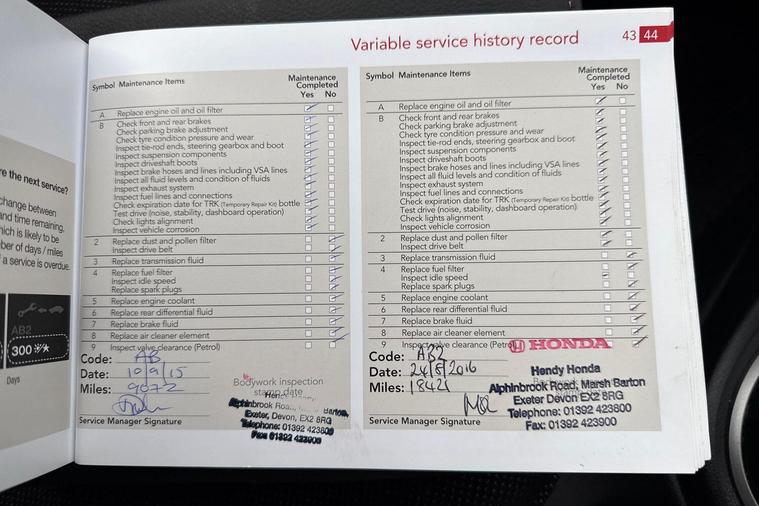 Variable service history record 43 44
re the next service?
change between
and time remaining,
hich is likely to be
ber of days / miles
a service is overdue.
AB2
300
Days
Symbol Maintenance Items
Maintenance
Completed
Yes No
A Replace engine oil and oil filter
B Check front and rear brakes
Check parking brake adjustment
Check tyre condition pressure and wear
Inspect tie-rod ends, steering gearbox and boot
Inspect suspension components
Inspect driveshaft boots
Inspect brake hoses and lines including VSA lines
Inspect all fluid levels and condition of fluids
Inspect exhaust system
Inspect fuel lines and connections
Check expiration date for TRK (Temporary Repair Kit) bottle
Test drive (noise, stability, dashboard operation)
Check lights alignment
Inspect vehicle corrosion
2 Replace dust and pollen filter
Inspect drive belt
3 Replace transmission fluid
4 Replace fuel filter
Inspect idle speed
Replace spark plugs
5 Replace engine coolant
6 Replace rear differential fluid
7 Replace brake fluid
8 Replace air cleaner element
9 Inspect valve clearance (Petrol)
Code: AB
Date: 10/9/15
Miles: 9072
Service Manager Signature
Bodywork inspection
stamp date
Alphinbrook Roa Barton,
Exeter, Devon, EX2 8RG
Telephone: 01392 423800
Fax: 01392 423900
Symbol Maintenance Items
Maintenance
Completed
Yes No
A Replace engine oil and oil filter
B Check front and rear brakes
Check parking brake adjustment
Check tyre condition pressure and wear
Inspect tie-rod ends, steering gearbox and boot
Inspect suspension components
Inspect driveshaft boots
Inspect brake hoses and lines including VSA lines
Inspect all fluid levels and condition of fluids
Inspect exhaust system
Inspect fuel lines and connections
Check expiration date for TRK (Temporary Repair Kit) bottle
Test drive (noise, stability, dashboard operation)
Check lights alignment
Inspect vehicle corrosion
2 Replace dust and pollen filter
Inspect drive belt
3 Replace transmission fluid
4 Replace fuel filter
Inspect idle speed
Replace spark plugs
5 Replace engine coolant
6 Replace rear differential fluid
7 Replace brake fluid
8 Replace air cleaner element
9 Inspect valve clearance (Petrol)
Code: AB2
Date: 24/8/2016
Miles: 18421
Service Manager Signature
HONDA
Hendy Honda
Alphinbrook Road, Marsh Barton
Exeter Devon EX2 8RG
Telephone: 01392 423800
Fax: 01392 423900